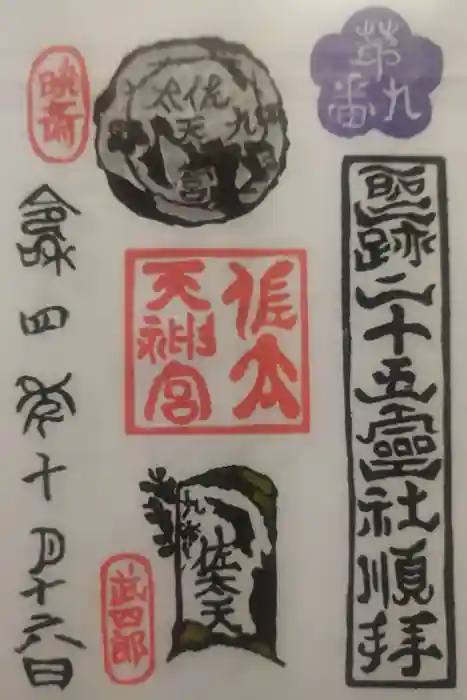 第九番
聖跡二十五霊社順拝
佐太天神宮
九
佐太天
佐太
天神宮
九番
佐太天
暁斎
令和四年十月十六日
武四郎